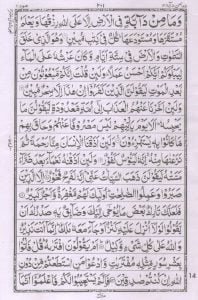 ٢٠١
وَمَا مِنْ دَآبَّةٍ فِي الْاَرْضِ اِلَّا عَلَى اللّٰهِ رِزْقُهَا وَيَعْلَمُ
مُسْتَقَرَّهَا وَمُسْتَوْدَعَهَا كُلٌّ فِيْ كِتٰبٍ مُّبِيْنٍ وَهُوَ الَّذِيْ خَلَقَ
السَّمٰوٰتِ وَالْاَرْضَ فِيْ سِتَّةِ اَيَّامٍ وَّكَانَ عَرْشُهٗ عَلَى الْمَآءِ
لِيَبْلُوَكُمْ اَيُّكُمْ اَحْسَنُ عَمَلًا وَلَئِنْ قُلْتَ اِنَّكُمْ مَّبْعُوْثُوْنَ مِنْ
بَعْدِ الْمَوْتِ لَيَقُوْلَنَّ الَّذِيْنَ كَفَرُوْٓا اِنْ هٰذَآ اِلَّا سِحْرٌ مُّبِيْنٌ
وَلَئِنْ اَخَّرْنَا عَنْهُمُ الْعَذَابَ اِلٰٓى اُمَّةٍ مَّعْدُوْدَةٍ لَّيَقُوْلُنَّ مَا
يَحْبِسُهٗ اَلَا يَوْمَ يَاْتِيْهِمْ لَيْسَ مَصْرُوْفًا عَنْهُمْ وَحَاقَ بِهِمْ
مَّا كَانُوْا بِهٖ يَسْتَهْزِءُوْنَ وَلَئِنْ اَذَقْنَا الْاِنْسَانَ مِنَّا رَحْمَةً ثُمَّ
نَزَعْنٰهَا مِنْهُ اِنَّهٗ لَيَئُوْسٌ كَفُوْرٌ وَلَئِنْ اَذَقْنٰهُ نَعْمَآءَ بَعْدَ ضَرَّآءَ
مَسَّتْهُ لَيَقُوْلَنَّ ذَهَبَ السَّيِّاٰتُ عَنِّيْ اِنَّهٗ لَفَرِحٌ فَخُوْرٌ اِلَّا الَّذِيْنَ
صَبَرُوْا وَعَمِلُوا الصّٰلِحٰتِ اُولٰٓئِكَ لَهُمْ مَّغْفِرَةٌ وَّاَجْرٌ كَبِيْرٌ
فَلَعَلَّكَ تَارِكٌۢ بَعْضَ مَا يُوْحٰٓى اِلَيْكَ وَضَآئِقٌۢ بِهٖ صَدْرُكَ اَنْ
يَّقُوْلُوْا لَوْلَآ اُنْزِلَ عَلَيْهِ كَنْزٌ اَوْ جَآءَ مَعَهٗ مَلَكٌ اِنَّمَآ اَنْتَ نَذِيْرٌ وَ
اللّٰهُ عَلٰى كُلِّ شَيْءٍ وَّكِيْلٌ اَمْ يَقُوْلُوْنَ افْتَرٰىهُ قُلْ فَاْتُوْا
بِعَشْرِ سُوَرٍ مِّثْلِهٖ مُفْتَرَيٰتٍ وَّادْعُوْا مَنِ اسْتَطَعْتُمْ مِّنْ دُوْنِ
اللّٰهِ اِنْ كُنْتُمْ صٰدِقِيْنَ فَاِلَّمْ يَسْتَجِيْبُوْا لَكُمْ فَاعْلَمُوْٓا اَنَّمَآ
14